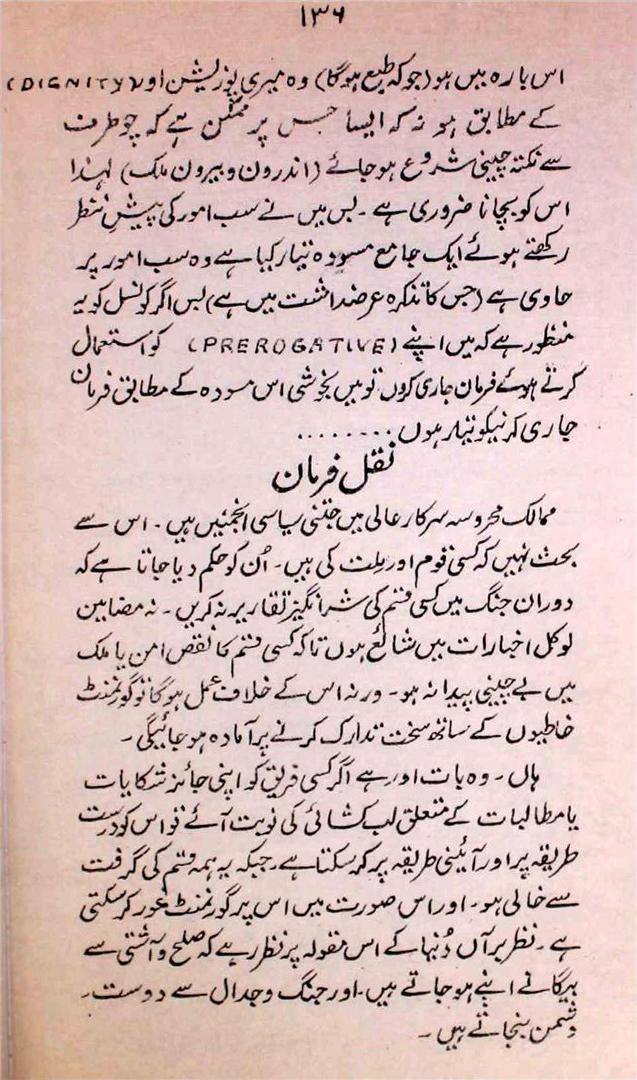 ۱۳۶
اس بارہ میں ہو (جو کہ طبع ہوگا) وہ میری پوزیشن اور (DIGNITY)
کے مطابق ہو نہ کہ ایسا جس پر ممکن ہے کہ چو طرف
سے نکتہ چینی شروع ہو جائے (اندرون و بیرون ملک) لہٰذا
اس کو بچانا ضروری ہے ۔ بس میں نے سب امور کی پیشِ نظر
رکھتے ہوئے ایک جامع مسودہ تیار کیا ہے وہ سب امور پر
حاوی ہے (جس کا تذکرہ عرضداشت میں ہے) بس اگر کونسل کو یہ
منظور ہے کہ میں اپنے (PREROGATIVE) کو استعمال
کرتے ہوئے فرمان جاری کروں تو میں بخوشی اس مسودہ کے مطابق فرمان
جاری کرنیکو تیار ہوں ........
نقل فرمان
ممالک محروسہ سرکار عالی میں جتنی سیاسی انجمنیں ہیں ۔ اس سے
بحث نہیں کہ کسی قوم اور مِلت کی ہیں ۔ اُن کو حکم دیا جاتا ہے کہ
دوران جنگ میں کسی قسم کی شر انگیز تقاریر نہ کریں ۔ نہ مضامین
لوکل اخبارات میں شائع ہوں تاکہ کسی قسم کا نقص امن یا ملک
میں بے چینی پیدا نہ ہو ۔ ورنہ اس کے خلاف عمل ہوگا تو گورنمنٹ
خاطیوں کے ساتھ سخت تدارک کرنے پر آمادہ ہو جائیگی ۔
ہاں ۔ وہ بات اور ہے اگر کسی فریق کو اپنی جائز شکایات
یا مطالبات کے متعلق لب کشائی کی نوبت آئے تو اس کو درست
طریقہ پر اور آئینی طریقہ پر کر سکتا ہے ۔ جبکہ یہ ہمہ قسم کی گرفت
سے خالی ہو ۔ اور اس صورت میں اس پر گورنمنٹ غور کر سکتی
ہے ۔ نظر برآں دُنیا کے اس مقولہ پر نظر رہے کہ صلح و آشتی سے
بیگانے اپنے ہو جاتے ہیں ۔ اور جنگ و جدال سے دوست ۔
دشمن بنجاتے ہیں ۔